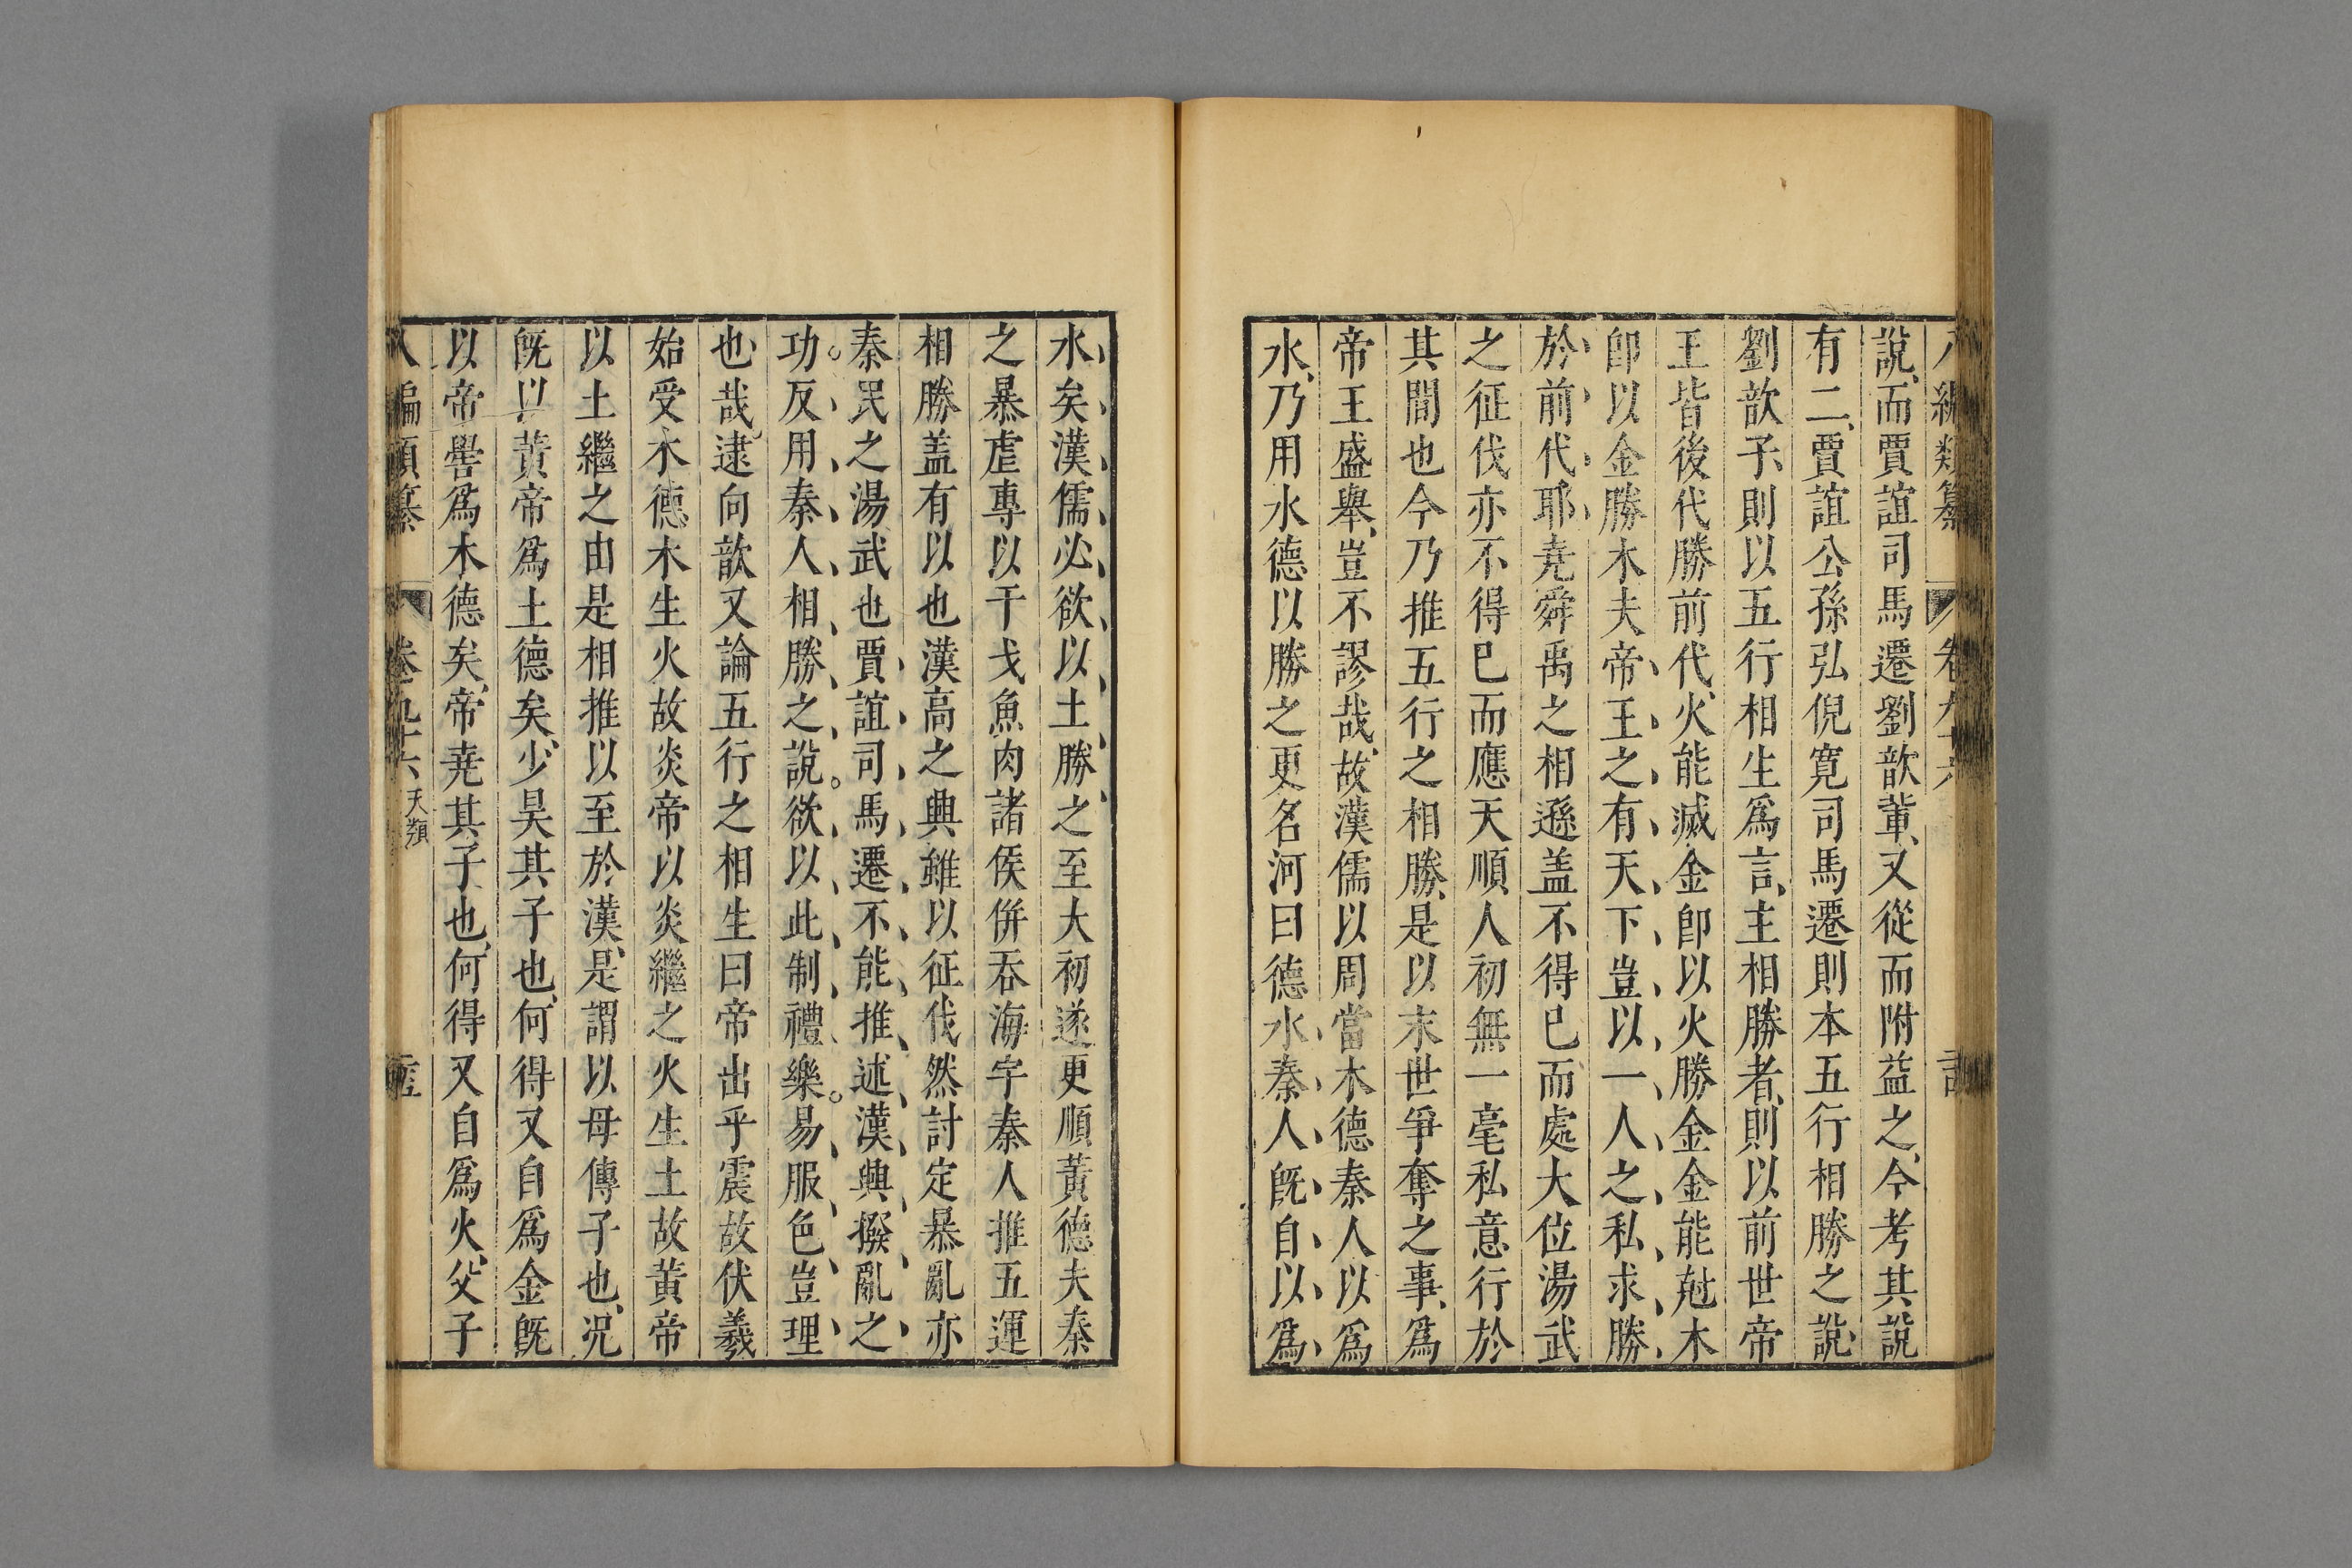 說而賈誼司馬遷劉歆輩又從而附益之今考其說
有二賈誼公孫弘倪寬司馬遷則本五行相勝之說
劉歆子則以五行相生爲言主相勝者則以前世帝
王皆後代勝前代火能滅金卽以火勝金金能尅木
卽以金勝木夫帝王之有天下豈以一人之私求勝
於前代耶堯舜禹之相遜盖不得已而處大位湯武
之征伐亦不得已而應天順人初無一毫私意行於
其間也今乃推五行之相勝是以末世爭奪之事爲
帝王盛舉豈不謬哉故漢儒以周當木德秦人以爲
水乃用水德以勝之更名河曰德水秦人旣自以爲
水矣漢儒必欲以土勝之至大初遂更順黃德夫秦
之暴虐專以干戈魚肉諸侯倂吞海宇秦人推五運
相勝盖有以也漢高之興雖以征伐然討定暴亂亦
秦民之湯武也賈誼司馬遷不能推述漢興撥亂之
功反用秦人相勝之說欲以此制禮樂易服色豈理
也哉逮向歆又論五行之相生曰帝出乎震故伏羲
始受木德木生火故炎帝以炎繼之火生土故黃帝
以土繼之由是相推以至於漢是謂以母傳子也况
旣以黃帝爲土德矣少昊其子也何得又自爲金旣
以帝嚳爲木德矣帝堯其子也何得又自爲火父子
八編類纂 卷九十六 天類